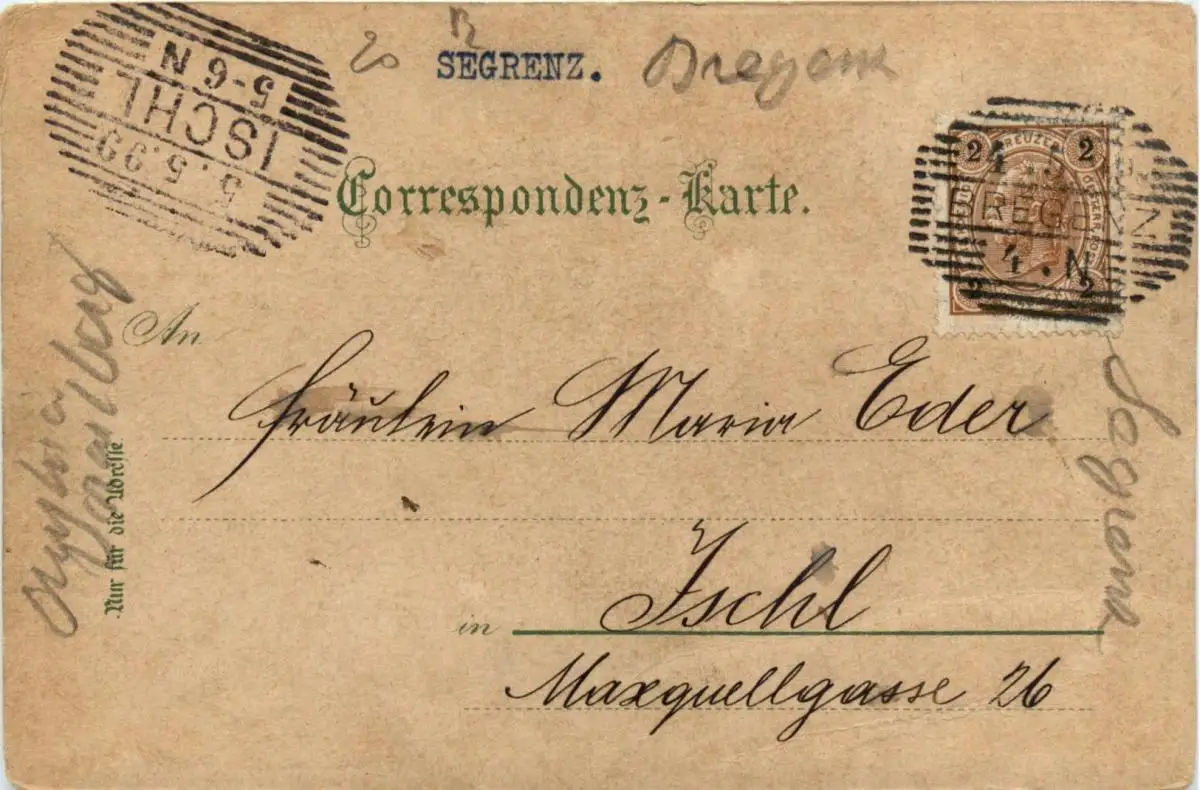 20 B
SEGRENZ. Bregenz
5.5.99
ISCHL
5-6 N
Correspondenz-Karte.
2 KREUZER 2
REGENZ
4. N
2 2
An
Fräulein Maria Eder
in Ischl
Maxquellgasse 26
Nur für die Adresse